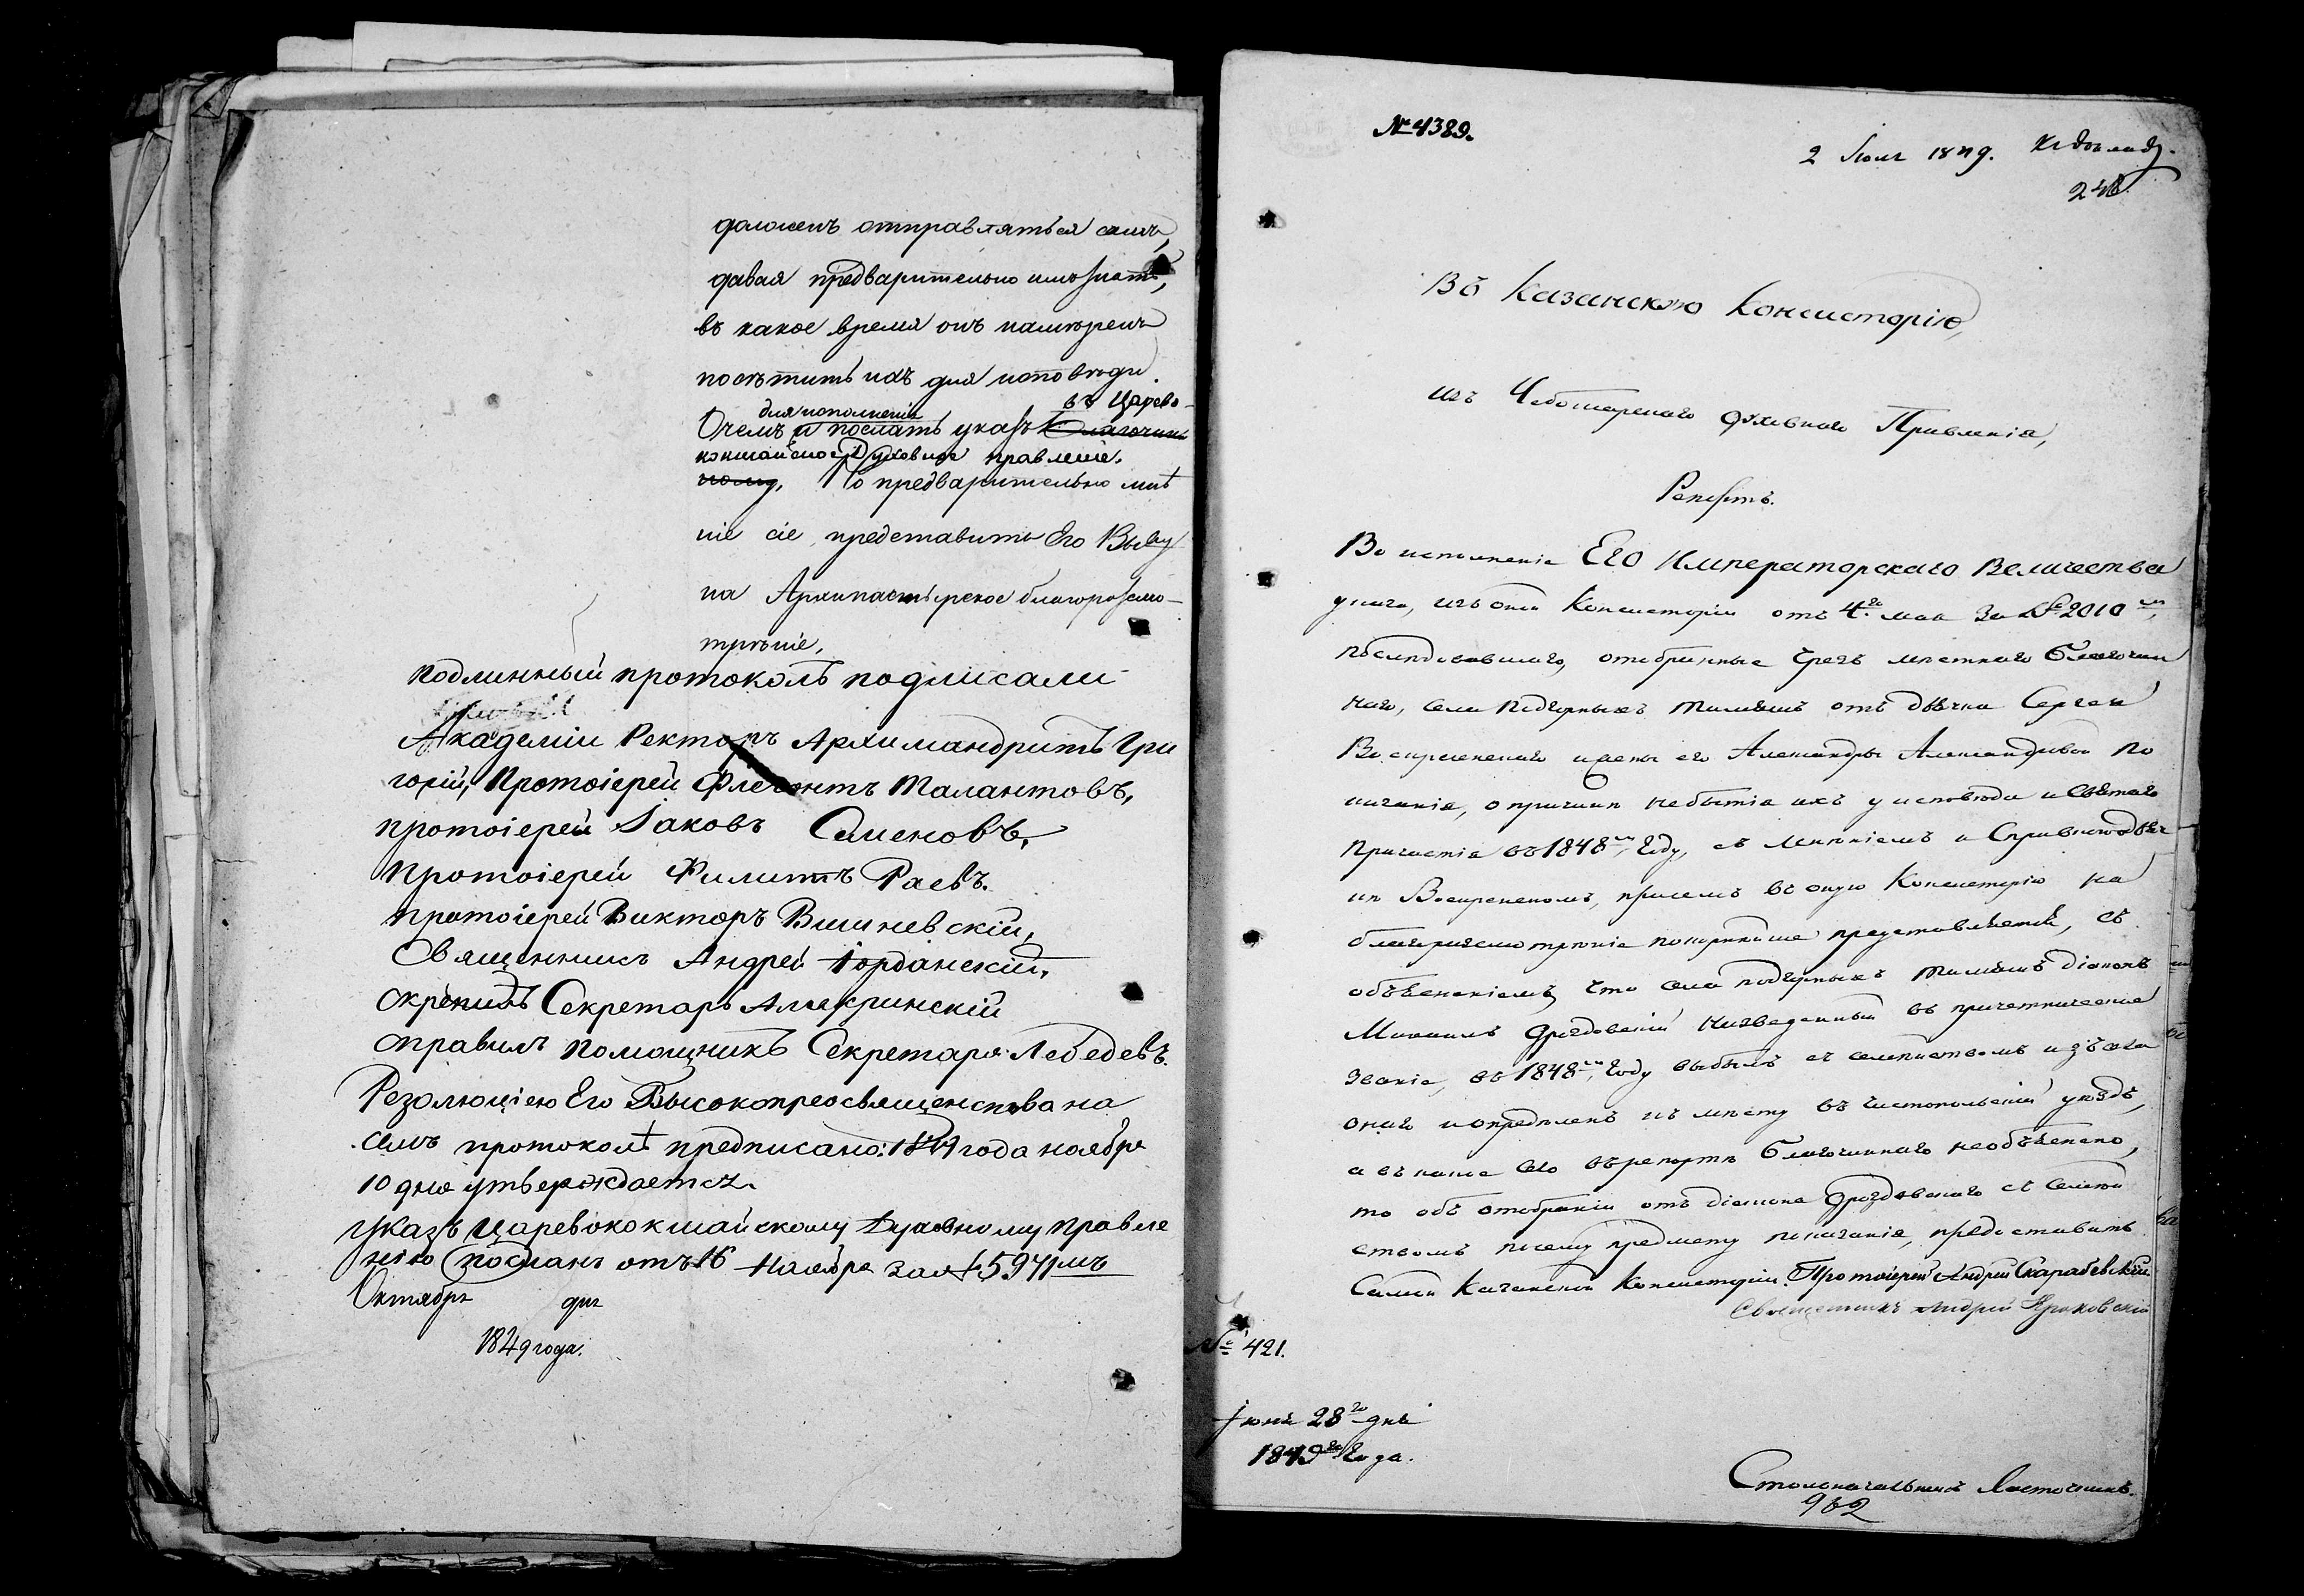 долженъ отправляться самъ,
давая предварительно имъ знать,
въ какое время онъ намѣренъ
посѣтить ихъ для исповѣди.
для исполненія въ Царево-
О чемъ и послать указъ Благочин
кокшайское Духовное правленіе.
ному, Но предварительно мнѣ
ніе сіе представить Его Выс
на Архипастырское благоразсмо-
трѣніе.
подлинный протоколъ подписали
Академіи Ректоръ Архимандритъ Гри
горій, Протоіерей Флегонтъ Талантовъ,
протоіерей Іаковъ Семеновъ,
протоіерей Филиппъ Раевъ.
протоіерей Викторъ Вишневскій,
Священникъ Андрей Іорданскій,
скрепилъ Секретарь Алакринскій
справилъ помощникъ Секретаря Лебедевъ.
Резолюціею Его Высокопреосвященства на
семъ протоколѣ предписано: 1849 года ноября
10 дня утверждается.
Указъ Царевококшайскому Духовному правле
нію посланъ отъ 16 Ноября за № 5941мъ
Октября дня
1849 года.
№ 4389.
2 Іюля 1849.
Въ Казанскую Консисторію,
изъ Чебоксарскаго Духовнаго Правленія,
Репортъ.
Во исполненіе Его Императорскаго Величества
указа, изъ оной Консисторіи отъ 4го мая за № 2010м,
послѣдовавшаго, отобранные чрезъ мѣстнаго Благочин
наго, села Подгорныхъ Тимяшъ отъ дьячка Сергея
Воскресенскаго и жены его Александры Александровой по
казанія, о причинѣ небытія ихъ у исповѣди и Святаго
Причастія въ 1848м году, съ мнѣніемъ и Справкою о дьяч
кѣ Воскресенскомъ, при семъ въ оную Консисторію на
благоразсмотрѣніе покорнѣйше представляетъ, съ
объясненіемъ, что села подгорныхъ Тимяшъ діаконъ
Михаилъ Дроздовскій низведенный въ причетническое
званіе, въ 1848м году выбылъ съ семействомъ изъ села
онаго и опредѣленъ къ мѣсту въ Чистопольскій уѣздъ,
а въ какое село въ репортѣ Благочиннаго необъяснено,
то объ отобраніи отъ діакона Дроздовскаго съ семей
ствомъ по сему предмету показанія, предоставить
Самой Казанской Консисторіи. Протоіерей Андрей Скарабевскій
Священникъ Андрей
№ 421.
Іюня 28го дня
1849го года.
Столоначальникъ Ласточкинъ.
982